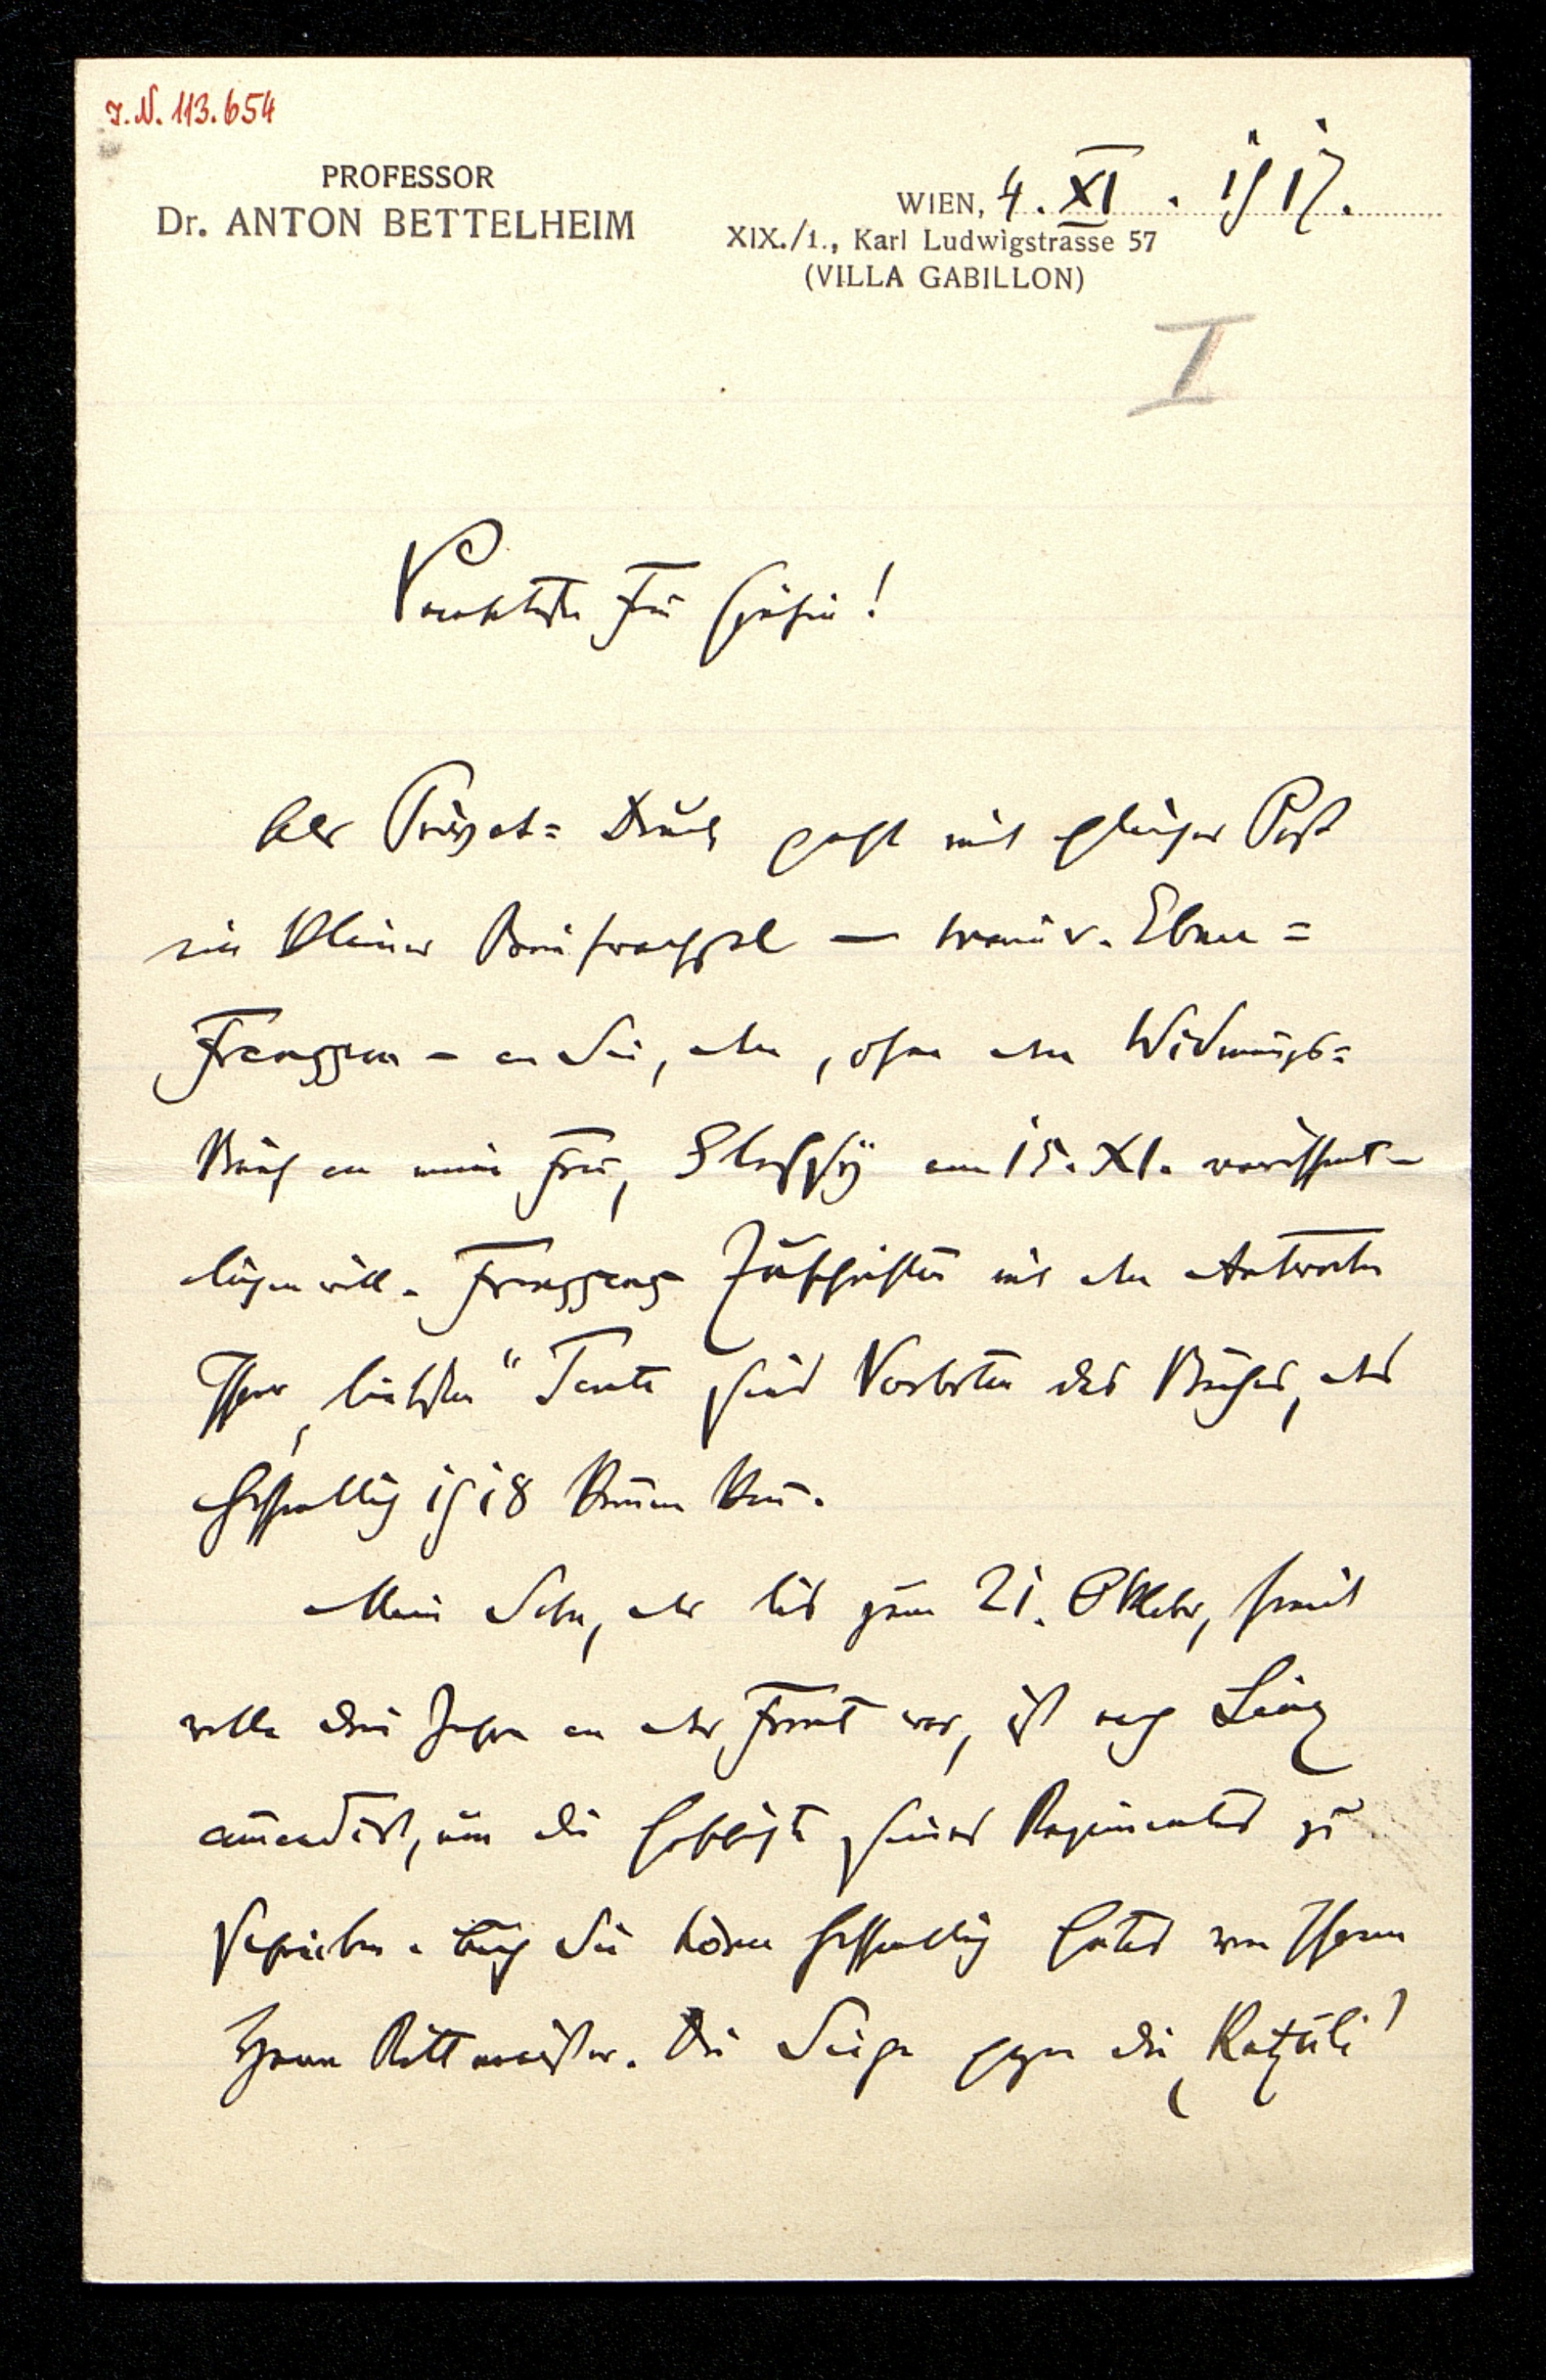 J.N. 113.654
PROFESSOR
Dr. ANTON BETTELHEIM
WIEN, 4. XI. 1917.
XIX./1., Karl Ludwigstrasse 57
(VILLA GABILLON)
I
Verehrteste Frau Gräfin!
Als Privat-Druck geht mit gleicher Post
ein kleiner Briefwechsel — Marie v. Ebner-
Franzos — an Sie, den, ohne den Widmungs-
Brief an meine Frau, Glossy am 15. XI. veröffent-
lichen will. Zuschriften mit den Antworten
Ihrer „liebsten" Tante sind Vorboten des Buches, das
hoffentlich 1918 kommen kann.
Mein Sohn, der bis zum 21. Oktober, somit
volle drei Jahre an der Front war, ist nach Linz
kommandirt, um die Geschichte seines Regimentes zu
schreiben. Auch Sie hören hoffentlich Gutes von Ihrem
Herrn Rittmeister. Die Siege gegen die „Katzeli"